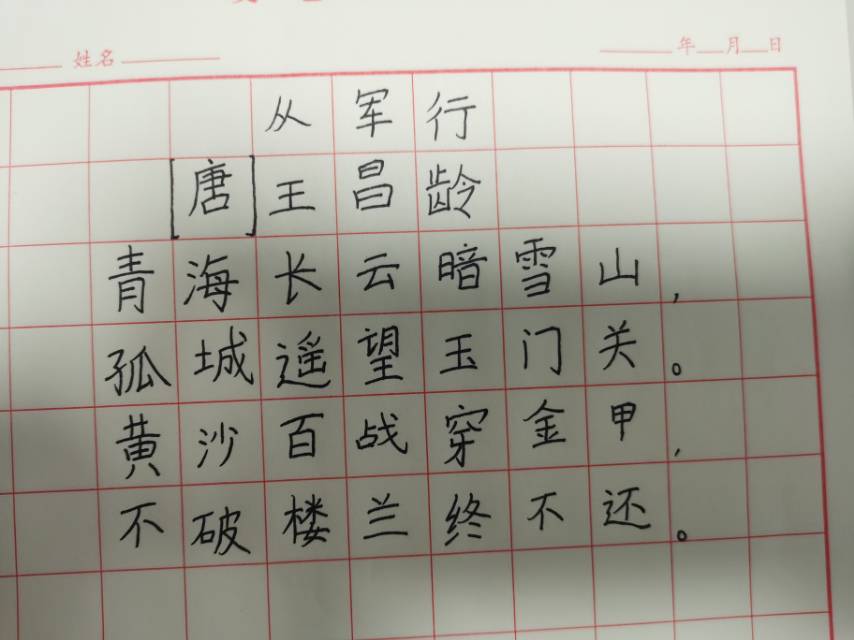 姓名 年 月 日
从军行
[唐]王昌龄
青海长云暗雪山,
孤城遥望玉门关。
黄沙百战穿金甲,
不破楼兰终不还。